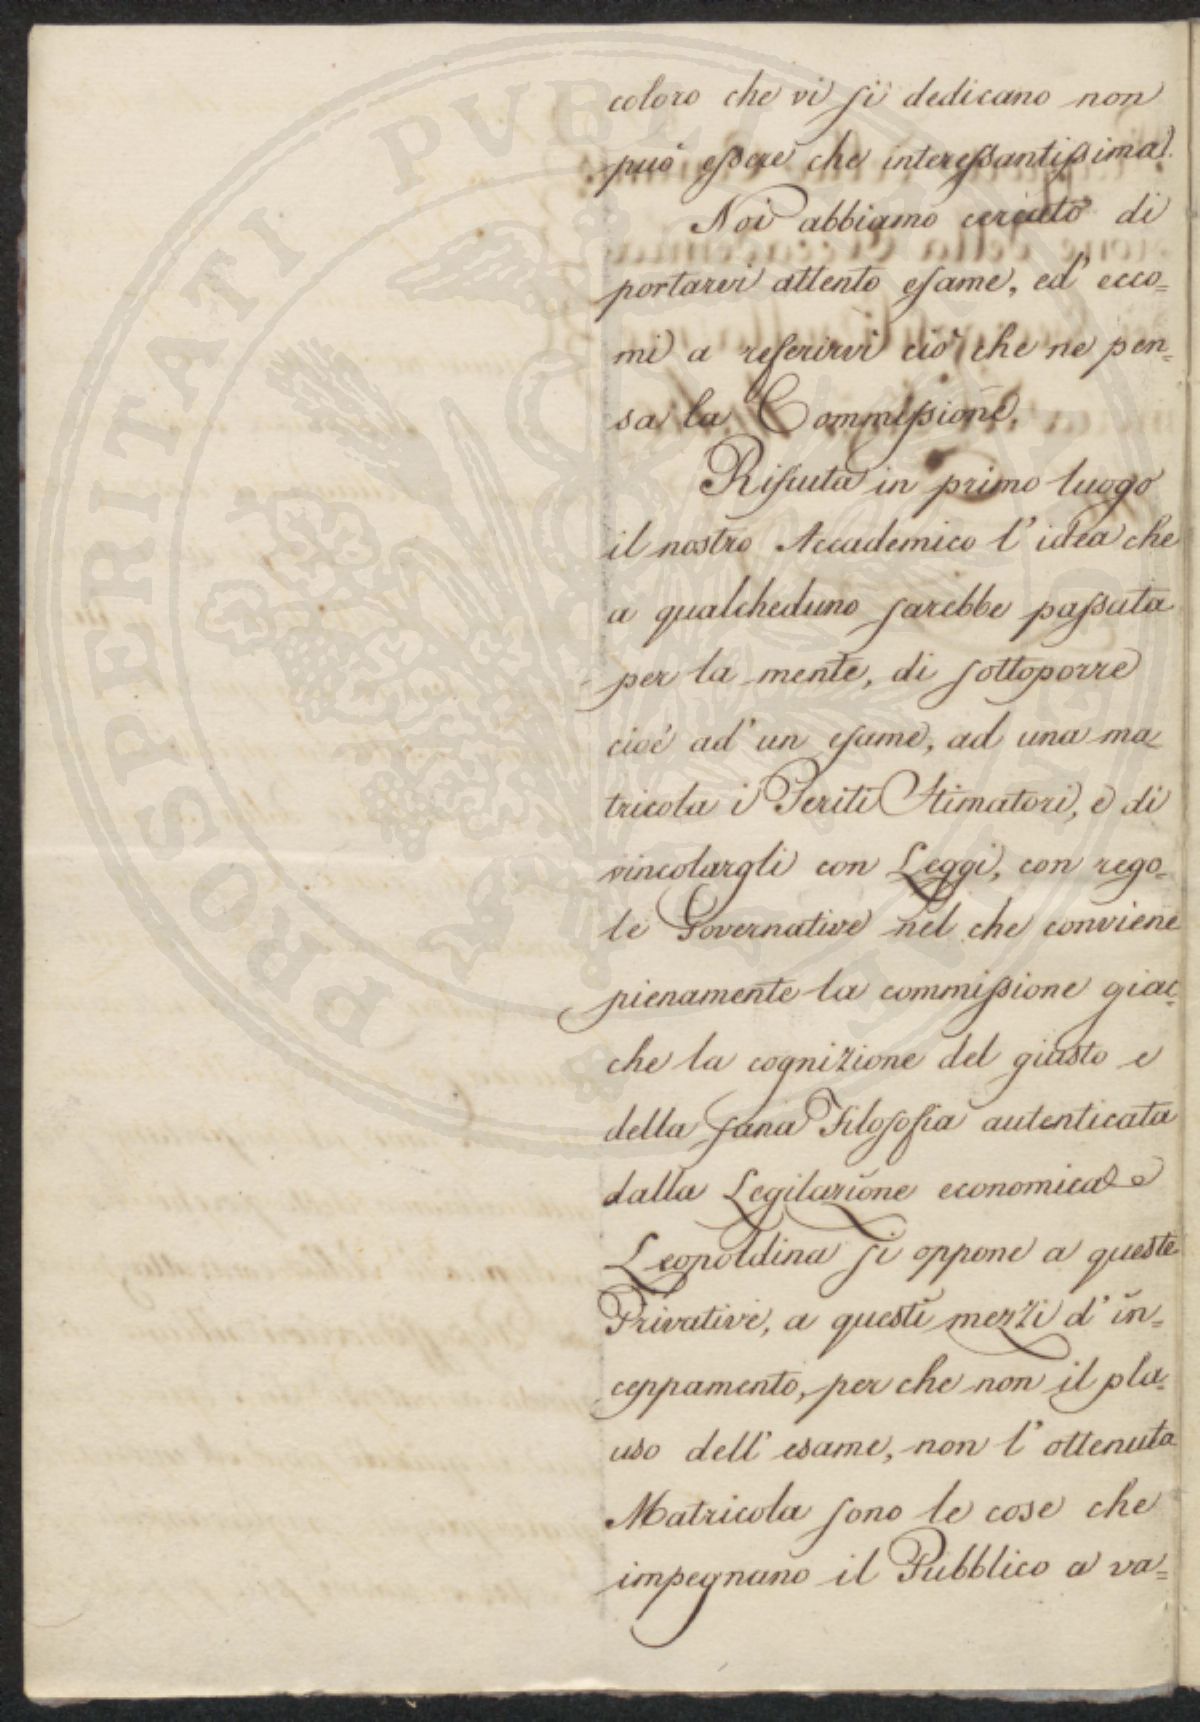 coloro che vi si dedicano non
può essere che interessantissima.
Noi abbiamo cercato di
portarvi attento esame, ed' ecco=
mi a referirvi ciò che ne pen=
sa la Commissione.
Rifiuta in primo luogo
il nostro Accademico l' idea che
a qualcheduno sarebbe passata
per la mente, di sottoporre
cioè ad' un esame, ad una ma=
tricola i Periti Stimatori, e di
vincolargli con Leggi, con rego=
le Governative nel che conviene
pienamente la commissione giac=
che la cognizione del giusto e
della sana Filosofia autenticata
dalla Legilazione economica e
Leopoldina si oppone a queste
Privative, a questi mezzi d' in=
ceppamento, per che non il pla=
uso dell' esame, non l' ottenuta
Matricola sono le cose che
impegnano il Pubblico a va=
PROSPERITATI PUBLICAE